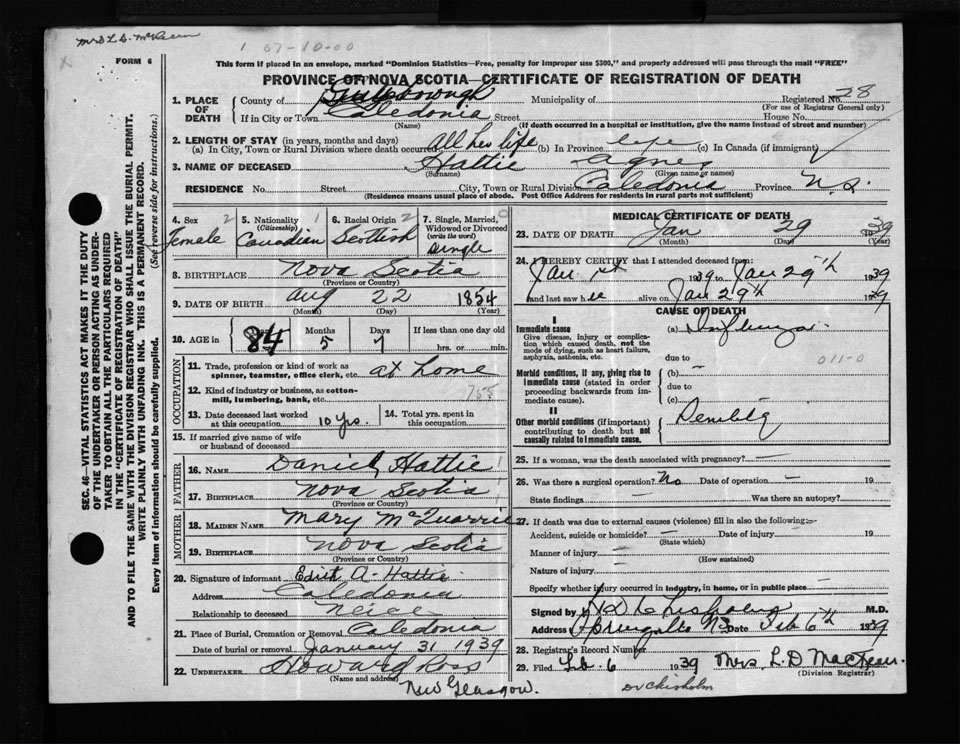 Mrs L. D. McKeen
1 07-10-00
FORM 6
This form if placed in an envelope, marked "Dominion Statistics—Free, penalty for improper use $300," and properly addressed will pass through the mail "FREE"
PROVINCE OF NOVA SCOTIA—CERTIFICATE OF REGISTRATION OF DEATH
1. PLACE OF DEATH County of Guysborough Municipality of Registered No. 28
(For use of Registrar General only)
If in City or Town Caledonia Street House No.
(Name) (If death occurred in a hospital or institution, give the name instead of street and number)
2. LENGTH OF STAY (in years, months and days)
(a) In City, Town or Rural Division where death occurred All her life (b) In Province life (c) In Canada (if immigrant)
3. NAME OF DECEASED Hattie Agnes
(Surname) (Given name or names)
RESIDENCE No. Street City, Town or Rural Division Caledonia Province N.S.
(Residence means usual place of abode. Post Office Address for residents in rural parts not sufficient)
4. Sex 2 Female
5. Nationality 1 (Citizenship) Canadian
6. Racial Origin 2 Scottish
7. Single, Married, Widowed or Divorced (write the word) Single
8. BIRTHPLACE Nova Scotia
(Province or Country)
9. DATE OF BIRTH Aug 22 1854
(Month) (Day) (Year)
10. AGE in Years 84 Months 5 Days 7 If less than one day old
hrs. or min.
OCCUPATION
11. Trade, profession or kind of work as spinner, teamster, office clerk, etc. at home
12. Kind of industry or business, as cotton-mill, lumbering, bank, etc.
13. Date deceased last worked at this occupation 10 yrs.
14. Total yrs. spent in this occupation
15. If married give name of wife or husband of deceased
FATHER
16. NAME Daniel Hattie
17. BIRTHPLACE Nova Scotia
(Province or Country)
MOTHER
18. MAIDEN NAME Mary McQuarrie
19. BIRTHPLACE Nova Scotia
(Province or Country)
20. Signature of informant Edith A. Hattie
Address Caledonia
Relationship to deceased Neice
21. Place of Burial, Cremation or Removal Caledonia
Date of burial or removal January 31 1939
22. UNDERTAKER Howard Ross
(Name and address)
New Glasgow.
MEDICAL CERTIFICATE OF DEATH
23. DATE OF DEATH Jan 29 1939
(Month) (Day) (Year)
24. I HEREBY CERTIFY that I attended deceased from:
Jan 1st 1939 to Jan 29th 1939
and last saw her alive on Jan 29th 1939
CAUSE OF DEATH
I
Immediate cause (a) Influenza.
Give disease, injury or complication which caused death, not the mode of dying, such as heart failure, asphyxia, asthenia, etc.
due to 011-0
Morbid conditions, if any, giving rise to immediate cause (stated in order proceeding backwards from immediate cause). (b) —
due to
(c)
II
Other morbid conditions (if important) contributing to death but not causally related to immediate cause. Senility
25. If a woman, was the death associated with pregnancy? —
26. Was there a surgical operation? No Date of operation — 19
State findings — Was there an autopsy?
27. If death was due to external causes (violence) fill in also the following:—
Accident, suicide or homicide? — Date of injury — 19
(State which)
Manner of injury —
(How sustained)
Nature of injury —
Specify whether injury occurred in industry, in home, or in public place —
Signed by Chisholm M.D.
Address Date Feb 6th 1939
28. Registrar's Record Number
29. Filed Feb. 6 1939 Mrs. L. D. MacKeen.
(Division Registrar)
Dr Chisholm
SEC. 46—VITAL STATISTICS ACT MAKES IT THE DUTY
OF THE UNDERTAKER OR PERSON ACTING AS UNDER-
TAKER TO OBTAIN ALL THE PARTICULARS REQUIRED
IN THE "CERTIFICATE OF REGISTRATION OF DEATH"
AND TO FILE THE SAME WITH THE DIVISION REGISTRAR WHO SHALL ISSUE THE BURIAL PERMIT.
WRITE PLAINLY WITH UNFADING INK. THIS IS A PERMANENT RECORD.
Every item of Information should be carefully supplied. (See reverse side for instructions.)